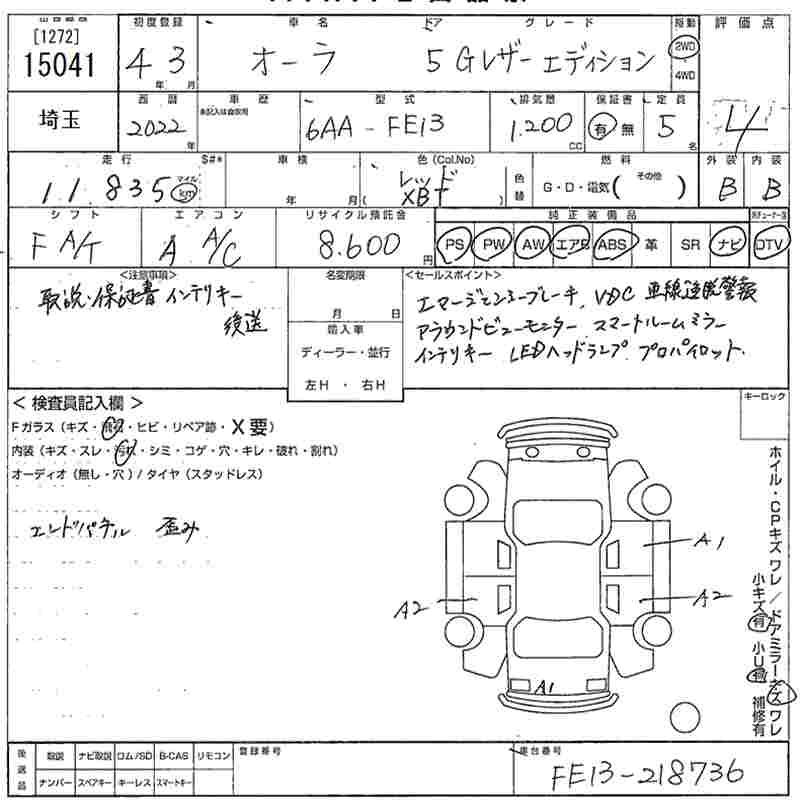 [1272]
15041
初度登録 車名 ドア グレード 駆動 評価点
4年 3月 オーラ 5 Gレザーエディション 2WD 4WD
4
埼玉
西暦 車歴 型式 排気量 保証書 定員
2022年 6AA-FE13 1.200cc 有 無 5名
走行 S#* 車検 色(Col.No) 色替 燃料 外装 内装
11.835 マイル km 年 月 レッド XBF G・D・電気( その他 ) B B
シフト エアコン リサイクル預託金 純正装備品
F A/T A A/C 8.600円 PS PW AW エアB ABS 革 SR ナビ DTV
<注意事項> 名変期限 <セールスポイント>
取説・保証書 インテリキー
後送
月 日
輸入車
ディーラー・並行
左H ・ 右H
エマージェンシーブレーキ. VDC 車線逸脱警報
アラウンドビューモニター スマートルームミラー
インテリキー LEDヘッドランプ プロパイロット.
＜ 検査員記入欄 ＞ キーロック
Fガラス (キズ・飛石・ヒビ・リペア跡・X要)
内装 (キズ・スレ・汚れ・シミ・コゲ・穴・キレ・破れ・割れ)
オーディオ (無し・穴) / タイヤ (スタッドレス)
エンドパネル 歪み
A1
A2
A2
A1
ホイル・CPキズ ワレ / ドアミラーキズ ワレ
小キズ有 小U有 補修有
後送品 取説 ナビ取説 ロム/SD B-CAS リモコン 登録番号 車台番号
ナンバー スペアキー キーレス スマートキー
FE13-218736